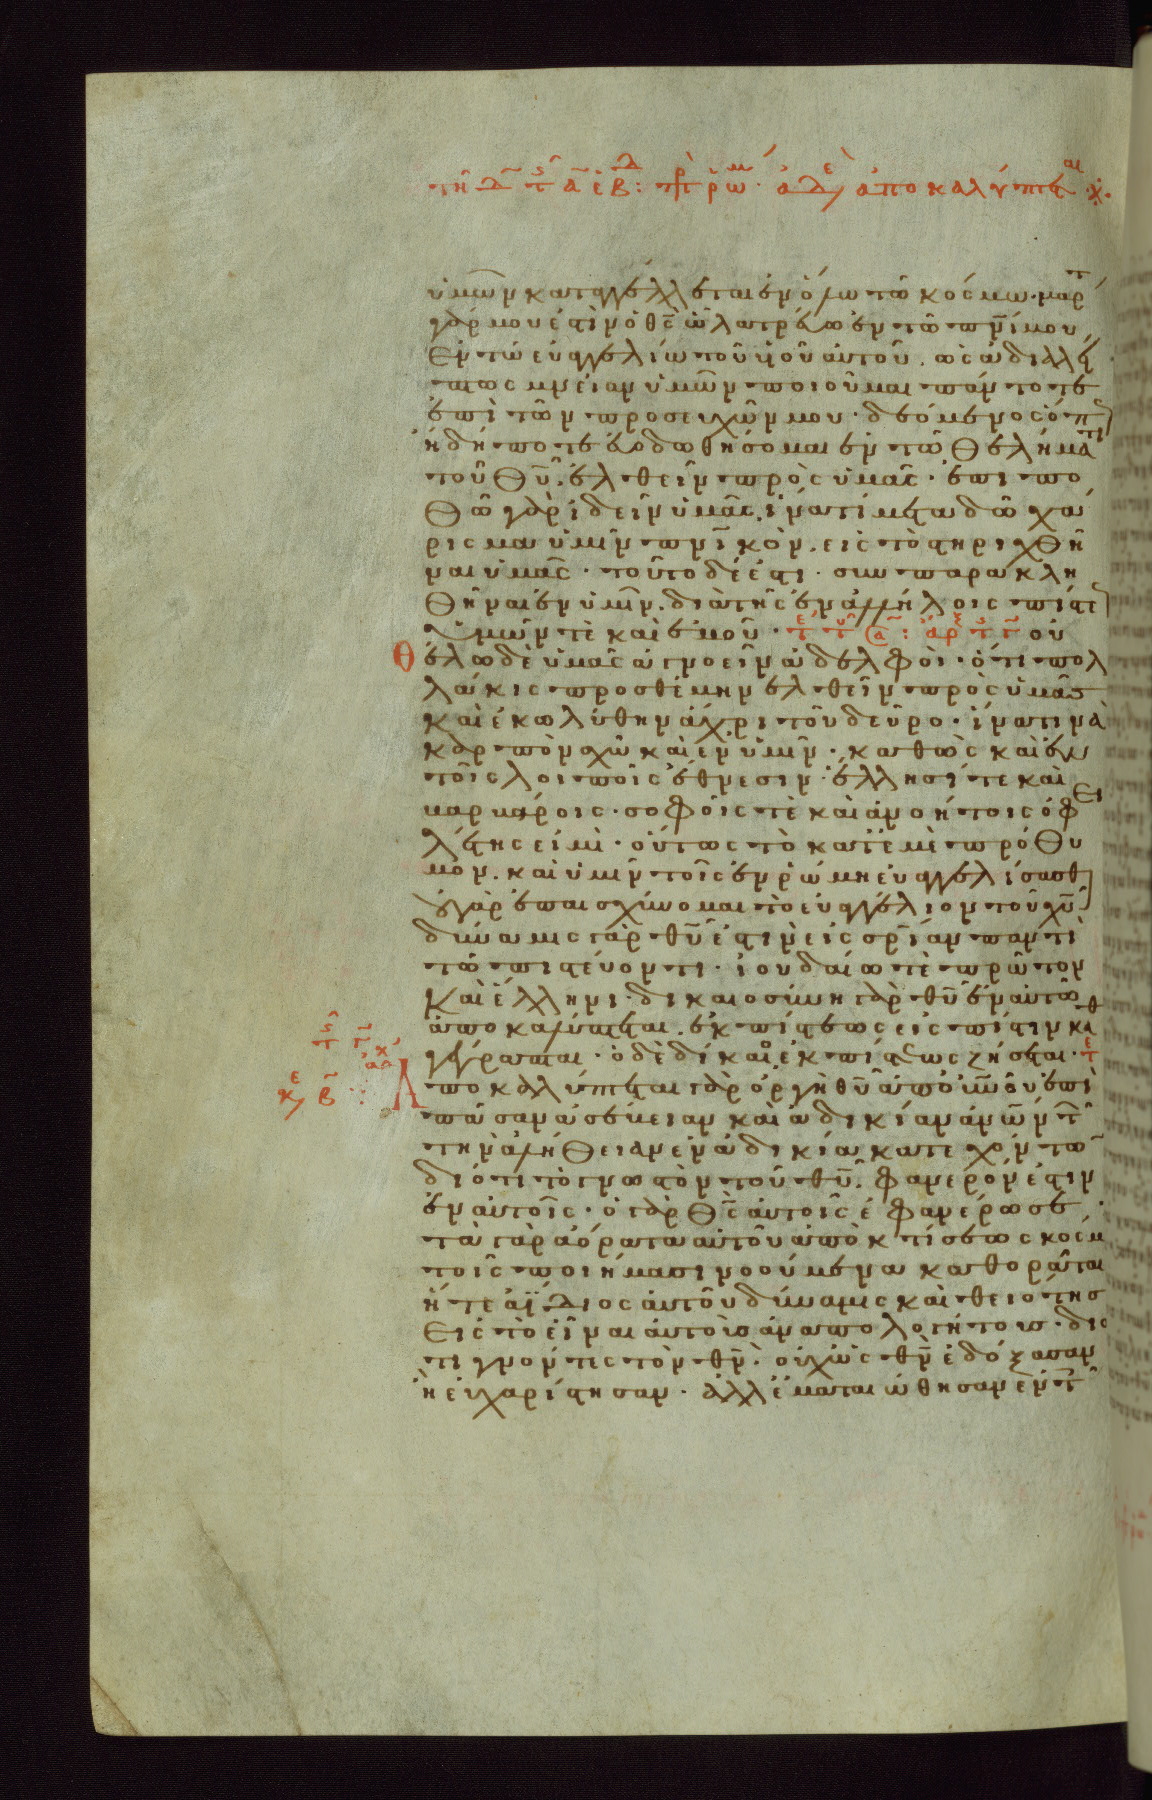 τῆ δ τ̄ ᾱ εβδ: πρ ρωμ· ἀδε ἀποκαλύπτεται
ὑμῶν καταγγέλλεται ἐν ὅλω τῶ κόσμω· μαρτ
γάρ μου ἐστὶν ὁ θς ὧ λατρεύω ἐν τῶ πνι μου
ἐν τῶ εὐαγγελίω τοῦ υἱοῦ αὐτοῦ. ὡς ἀδιαλεί
πτως μνείαν ὑμῶν ποιοῦμαι πάντοτε
ἐπὶ τῶν προσευχῶν μου· δεόμενος ὅπ
ἤδη ποτὲ εὐοδωθήσομαι ἐν τῶ θελήματι
τοῦ θυ ἐλθεῖν πρὸς ὑμᾶς· ἐπιπο
θῶ γὰρ ἰδεῖν ὑμᾶς, ἵνα τι μεταδῶ χά
ρισμα ὑμῖν πνικὸν, εἰς τὸ στηριχθῆ
ναι ὑμᾶς· τοῦτο δέ ἐστι· συμπαρακλη
θῆναι ἐν ὑμῖν, διὰ τῆς ἐν ἀλλήλοις πίστε
ὑμῶν τὲ καὶ ἐμοῦ· τε τ ϛα: ἀρξ τ τ οὐ
θέλω δὲ ὑμᾶς ἀγνοεῖν ἀδελφοὶ· ὅτι πολ
λάκις προσθέμην ἐλθεῖν πρὸς ὑμᾶς
καὶ ἐκωλύθην ἄχρι τοῦ δεῦρο· ἵνα τινὰ
καρπὸν σχῶ καὶ ἐν ὑμῖν· καθὼς καὶ ἐν
τοῖς λοιποῖς ἔθνεσιν· ἕλλησί τε καὶ
βαρβάροις· σοφοῖς τὲ καὶ ἀνοήτοις ὀφει
λέτης εἰμὶ· οὕτως τὸ κατ ἐμὲ πρόθυ
μον, καὶ ὑμῖν τοῖς ἐν ρώμη εὐαγγελίσασθ
οὐ γὰρ ἐπαισχύνομαι τὸ εὐαγγέλιον τοῦ χυ
δύναμις γὰρ θυ ἐστὶν εἰς σρίαν παντὶ
τῶ πιστεύοντι· ἰουδαίω τὲ πρῶτον
καὶ ἕλληνι· δικαιοσύνη γὰρ θυ ἐν αὐτῶ
ἀποκαλύπτεται, ἐκ πίστεως εἰς πίστιν καθ
γέγραπται· ὁ δὲ δίκαιος ἐκ πίστεως ζήσεται· τε
ἀποκαλύπτεται γὰρ ὀργὴ θυ ἀπ οὐνοῦ ἐπὶ
πᾶσαν ἀσέβειαν καὶ ἀδικίαν ἀνων τ
τὴν ἀλήθειαν ἐν ἀδικία κατεχόντω
διότι τὸ γνωστὸν τοῦ θυ, φανερόν ἐστιν
ἐν αὐτοῖς· ὁ γὰρ θς αὐτοῖς ἐφανέρωσε
τὰ γὰρ ἀόρατα αὐτοῦ ἀπὸ κτίσεως κόσμ
τοῖς ποιήμασι νοούμενα καθορᾶται
ἥ τε ἀΐδιος αὐτοῦ δύναμις καὶ θειότης
εἰς τὸ εἶναι αὐτοὺς ἀναπολογήτους· διό
τι γνόντες τὸν θν, οὐχ ὡς θν ἐδόξασαν
ἢ εὐχαρίστησαν· ἀλλ ἐματαιώθησαν ἐν τ
κε β: